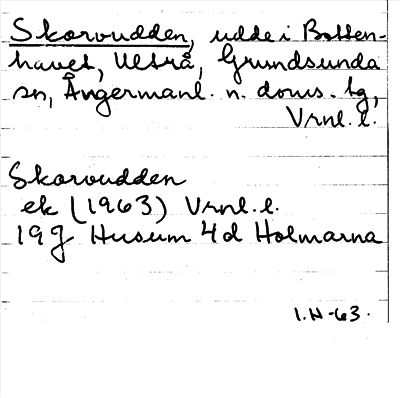 Skorvudden, udde i Botten-
havet, Ultrå, Grundsunda
sn, Ångermanl. n. doms. tg,
Vrnl. l.
Skorvudden
ek (1963) Vrnl. l.
19g Husum 4d Holmarna
1.H-63.